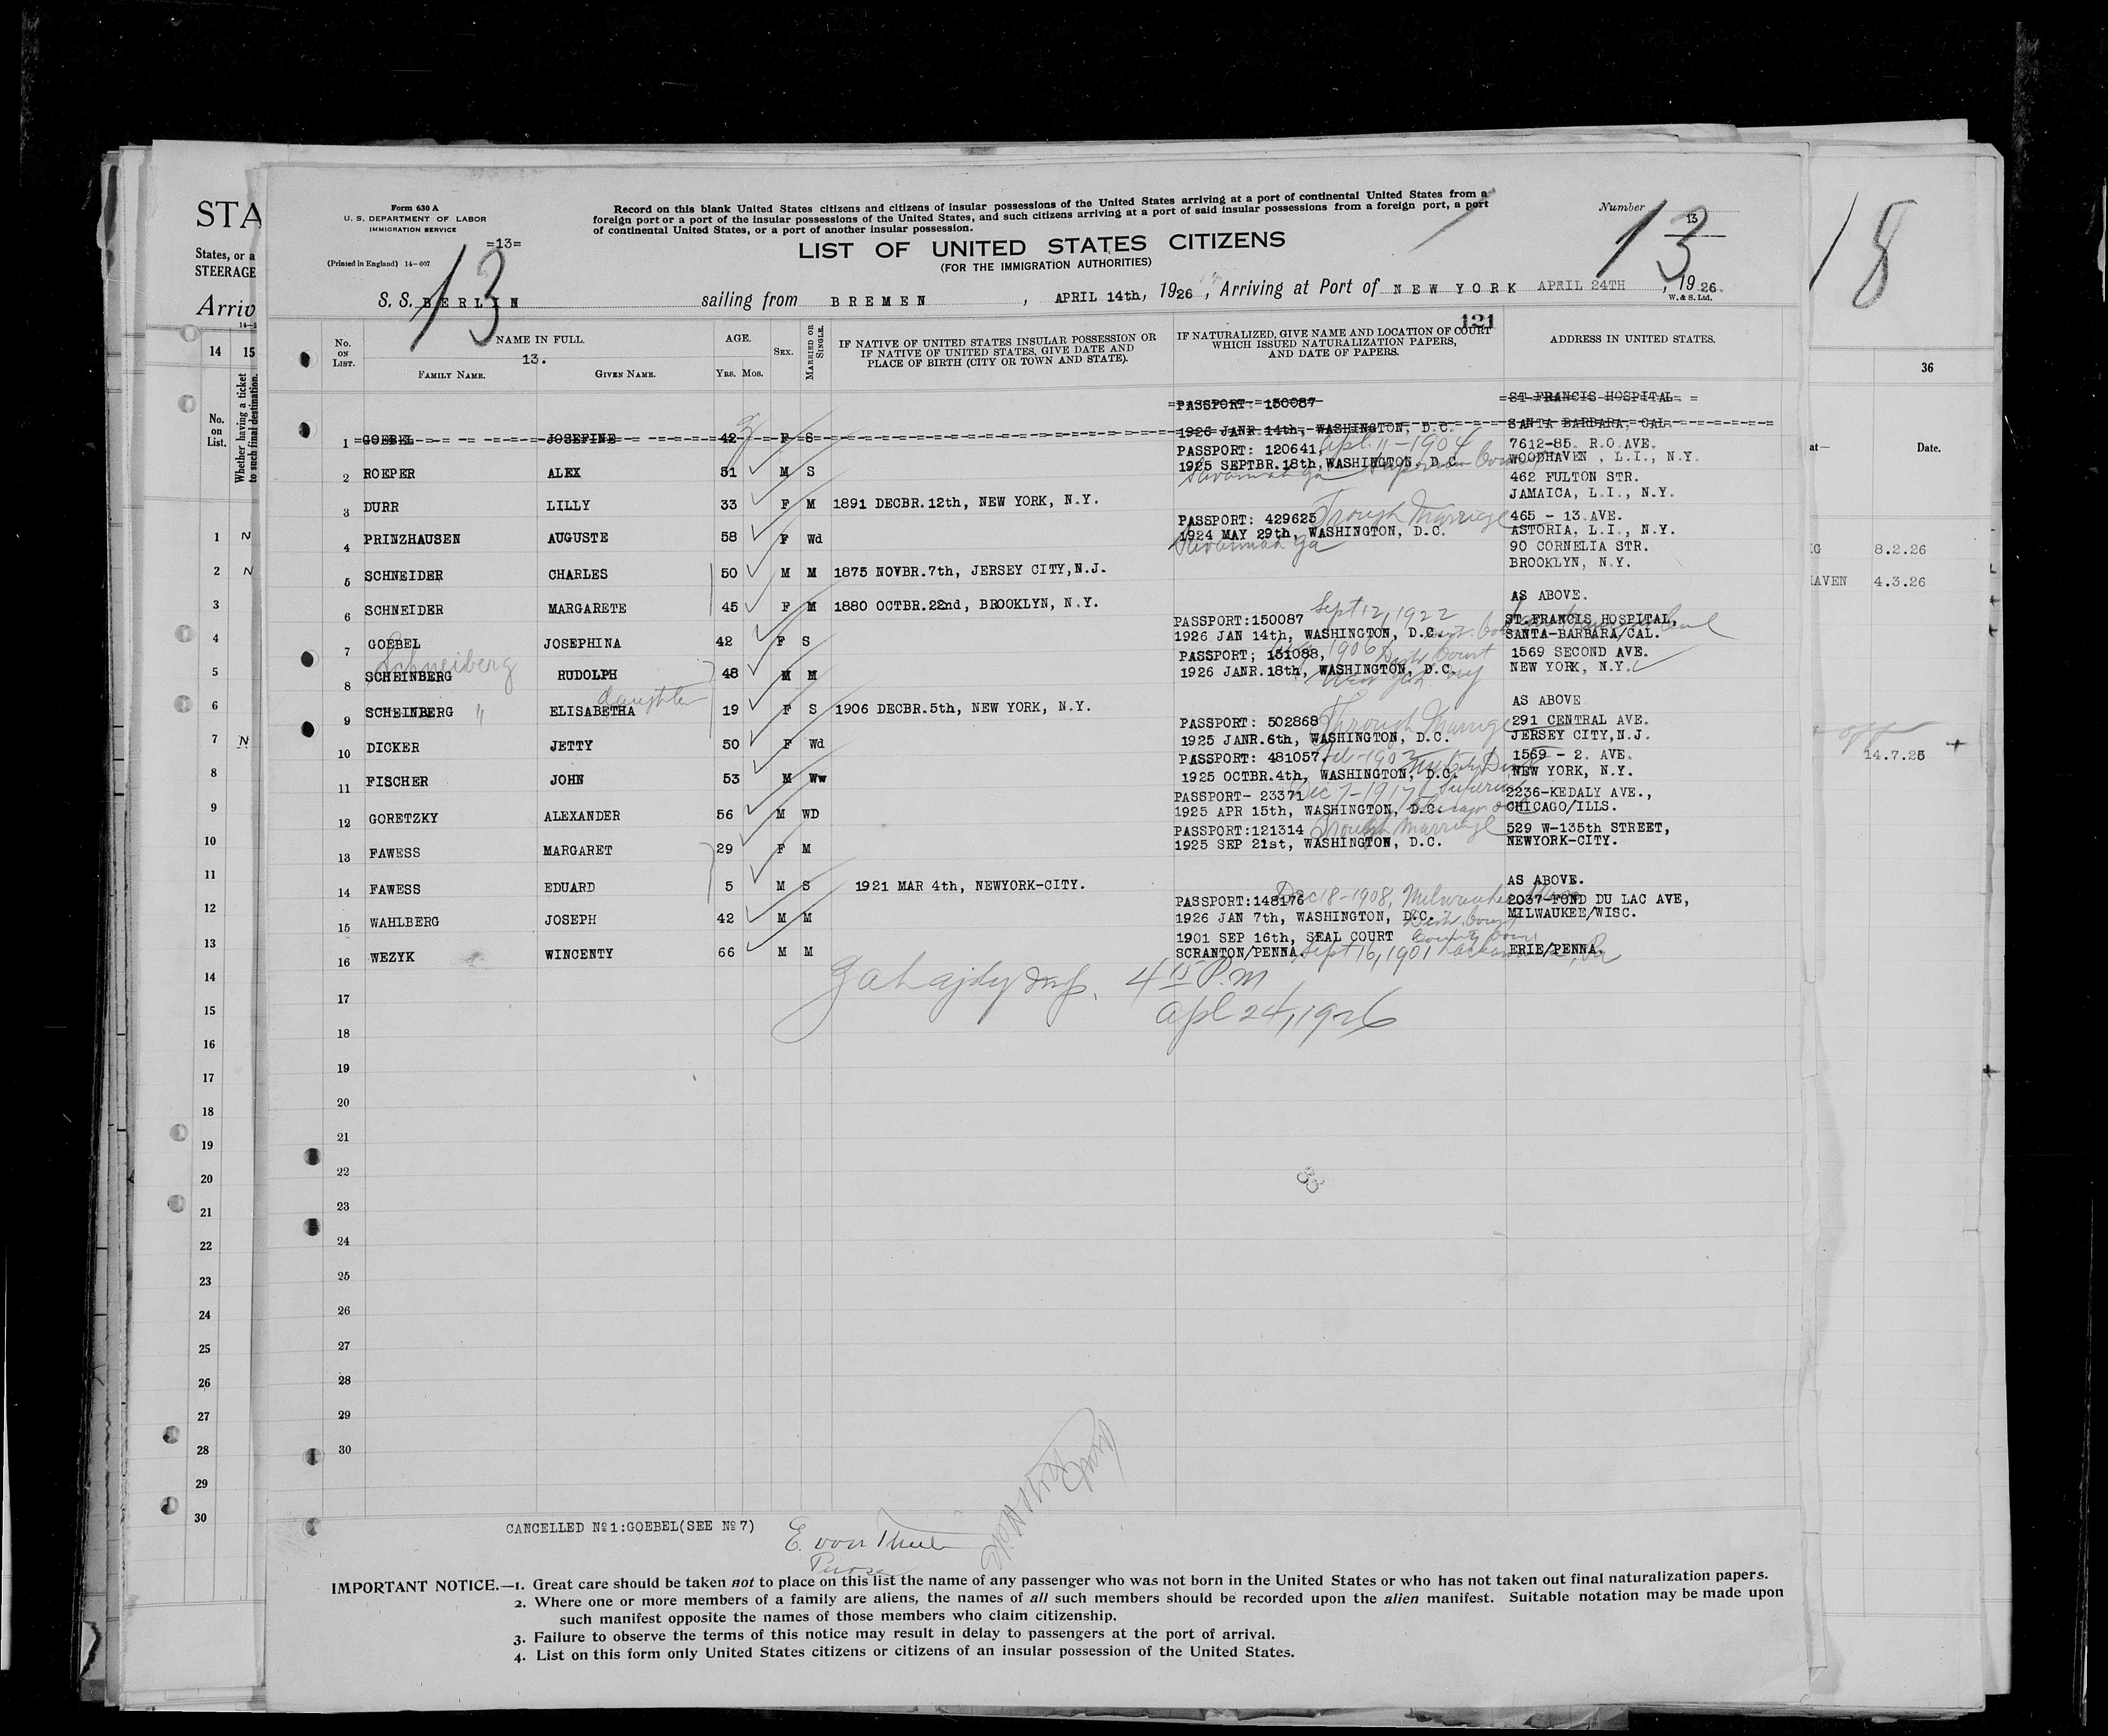 Form 630 A
U. S. DEPARTMENT OF LABOR
IMMIGRATION SERVICE
=13=
(Printed in England) 14-607
Record on this blank United States citizens and citizens of insular possessions of the United States arriving at a port of continental United States from a
foreign port or a port of the insular possessions of the United States, and such citizens arriving at a port of said insular possessions from a foreign port, a port
of continental United States, or a port of another insular possession.
Number 13
13
13
LIST OF UNITED STATES CITIZENS
(FOR THE IMMIGRATION AUTHORITIES)
S. S. BERLIN sailing from BREMEN, APRIL 14th, 1926, Arriving at Port of NEW YORK APRIL 24TH, 1926.
W. & S. Ltd.
121
No. on List. NAME IN FULL. 13. FAMILY NAME. GIVEN NAME. AGE. Yrs. Mos. SEX. MARRIED OR SINGLE. IF NATIVE OF UNITED STATES INSULAR POSSESSION OR IF NATIVE OF UNITED STATES, GIVE DATE AND PLACE OF BIRTH (CITY OR TOWN AND STATE). IF NATURALIZED, GIVE NAME AND LOCATION OF COURT WHICH ISSUED NATURALIZATION PAPERS, AND DATE OF PAPERS. ADDRESS IN UNITED STATES.
PASSPORT 150087 ST FRANCIS HOSPITAL
1 GOEBEL JOSEFINE 42 F S 1926 JANR 14th, WASHINGTON, D.C. SANTA BARBARA, CAL
PASSPORT: 120641, Apl. 11-1904 7612-85. R.O.AVE.
2 ROEPER ALEX 51 M S 1925 SEPTBR.18th, WASHINGTON, D.C. WOODHAVEN, L.I., N.Y.
Savannah Ga Superior Court
462 FULTON STR.
3 DURR LILLY 33 F M 1891 DECBR.12th, NEW YORK, N.Y. JAMAICA, L.I., N.Y.
PASSPORT: 429625 Trough Marriage 465 - 13.AVE.
4 PRINZHAUSEN AUGUSTE 58 F Wd 1924 MAY 29th, WASHINGTON, D.C. ASTORIA, L.I., N.Y.
Savannah Ga
90 CORNELIA STR.
5 SCHNEIDER CHARLES 50 M M 1875 NOVBR.7th, JERSEY CITY,N.J. BROOKLYN, N.Y.
6 SCHNEIDER MARGARETE 45 F M 1880 OCTBR.22nd, BROOKLYN, N.Y. AS ABOVE.
PASSPORT:150087 Sept 12, 1922 ST.FRANCIS HOSPITAL,
7 GOEBEL JOSEPHINA 42 F S 1926 JAN 14th, WASHINGTON, D.C. SANTA-BARBARA/CAL.
Schneiberg
PASSPORT; 151088, 1906 Dist Court 1569 SECOND AVE.
8 SCHEINBERG RUDOLPH 48 M M 1926 JANR.18th, WASHINGTON, D.C. NEW YORK, N.Y.
New York NY
daughter
9 SCHEINBERG " ELISABETHA 19 F S 1906 DECBR.5th, NEW YORK, N.Y. AS ABOVE
PASSPORT: 502868 Through Marriage 291 CENTRAL AVE.
10 DICKER JETTY 50 F Wd 1925 JANR.6th, WASHINGTON, D.C. JERSEY CITY,N.J.
PASSPORT: 481057 1569 - 2. AVE.
11 FISCHER JOHN 53 M Ww 1925 OCTBR.4th, WASHINGTON, D.C. NEW YORK, N.Y.
PASSPORT- 23371 Dec 7-1917 Superior 2236-KEDALY AVE.,
12 GORETZKY ALEXANDER 56 M WD 1925 APR 15th, WASHINGTON, D.C. Chicago CHICAGO/ILLS.
PASSPORT:121314 Trough Marriage 529 W-135th STREET,
13 FAWESS MARGARET 29 F M 1925 SEP 21st, WASHINGTON, D.C. NEWYORK-CITY.
14 FAWESS EDUARD 5 M S 1921 MAR 4th, NEWYORK-CITY. AS ABOVE.
PASSPORT:148176 Dec 18-1908, Milwaukee 2037-FOND DU LAC AVE,
15 WAHLBERG JOSEPH 42 M M 1926 JAN 7th, WASHINGTON, D.C. MILWAUKEE/WISC.
1901 SEP 16th, SEAL COURT County Court
16 WEZYK WINCENTY 66 M M SCRANTON/PENNA. Sept 16, 1901 Pa ERIE/PENNA.
4 15 P.M
Apl 24, 1926
17
18
19
20
21
22
23
24
25
26
27
28
29
30
33
CANCELLED No1:GOEBEL(SEE No7)
E. von Thülen
Purser
IMPORTANT NOTICE.—1. Great care should be taken not to place on this list the name of any passenger who was not born in the United States or who has not taken out final naturalization papers.
2. Where one or more members of a family are aliens, the names of all such members should be recorded upon the alien manifest. Suitable notation may be made upon
such manifest opposite the names of those members who claim citizenship.
3. Failure to observe the terms of this notice may result in delay to passengers at the port of arrival.
4. List on this form only United States citizens or citizens of an insular possession of the United States.
STA
States, or a
STEERAGE
Arriv
14 15
No. on List.
Whether having a ticket to such final destination.
1 N
2 N
3
4
5
6
7 N
8
9
10
11
12
13
14
15
16
17
18
19
20
21
22
23
24
25
26
27
28
29
30
18
36
at— Date.
8.2.26
AVEN 4.3.26
14.7.25